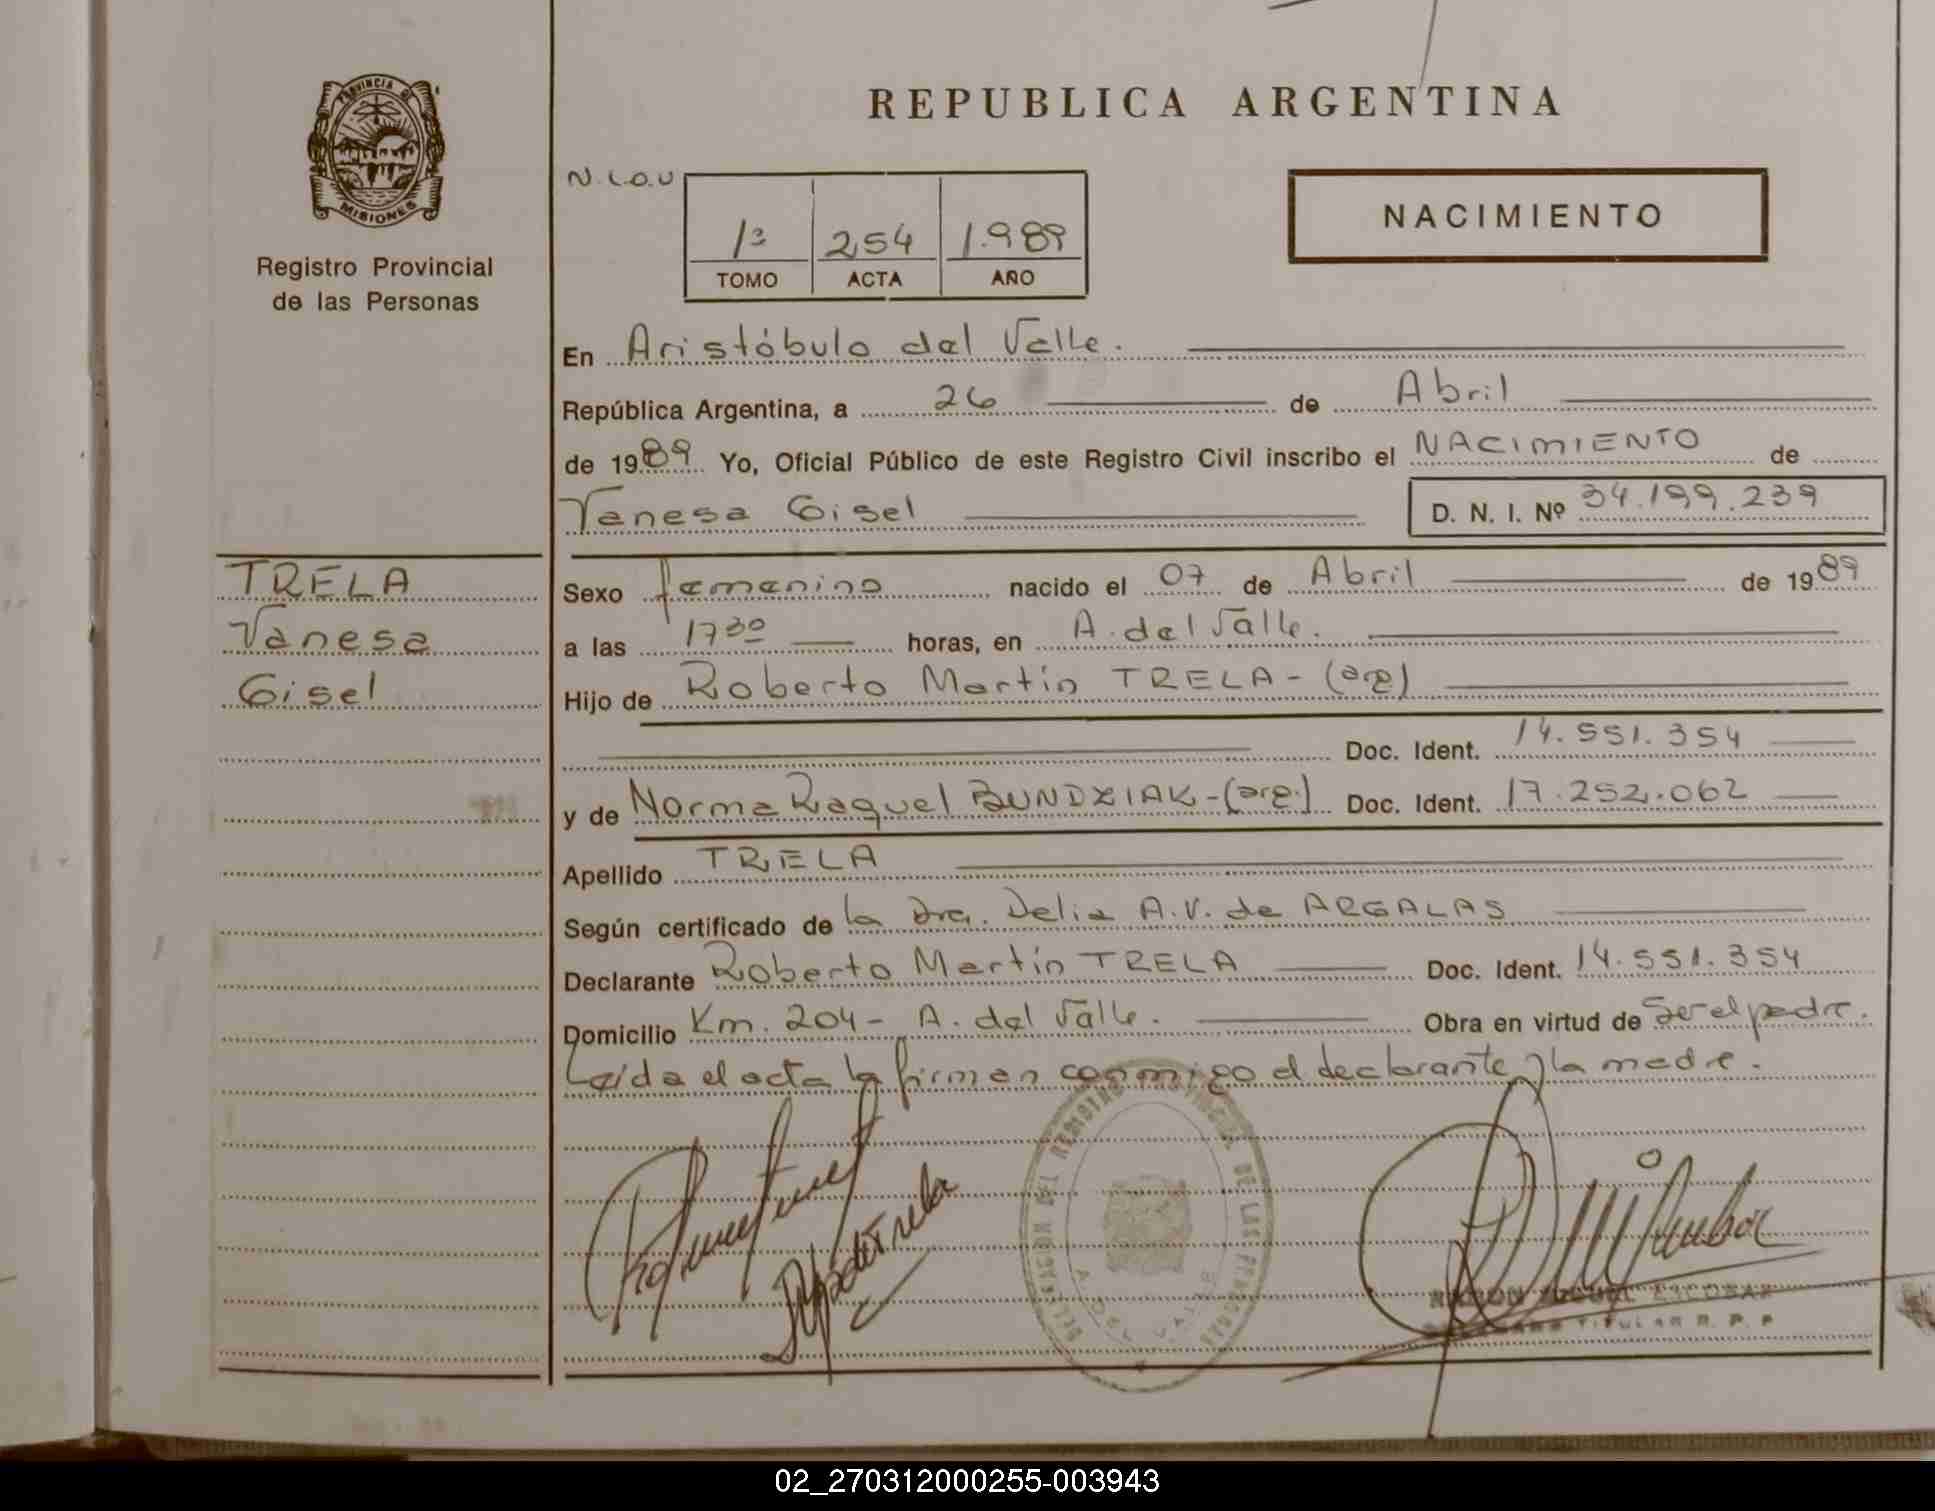 PROVINCIA D
MISIONES
Registro Provincial
de las Personas
REPUBLICA ARGENTINA
1ª 254 1.989
TOMO ACTA AÑO
NACIMIENTO
En Aristóbulo del Valle.
República Argentina, a 26 de Abril
de 1989 Yo, Oficial Público de este Registro Civil inscribo el NACIMIENTO de
Vanesa Gisel D. N. I. Nº 34.199.239
TRELA
Vanesa
Gisel
Sexo femenino nacido el 07 de Abril de 1989
a las 17³⁰ horas, en A. del Valle.
Hijo de Roberto Martín TRELA - (arg)
Doc. Ident. 14.551.354
y de Norma Raquel BUNDZIAK - (arg.) Doc. Ident. 17.252.062
Apellido TRELA
Según certificado de la Dra. Delia A.V. de ARGALAS
Declarante Roberto Martín TRELA Doc. Ident. 14.551.354
Domicilio Km. 204 - A. del Valle. Obra en virtud de Ser el padre.
Leída el acta la firman conmigo el declarante y la madre.
DELEGACION DEL REGISTRO PROVINCIAL DE LAS PERSONAS
A. DEL VALLE
ESCOBAR
TITULAR R. P. P
02_270312000255-003943